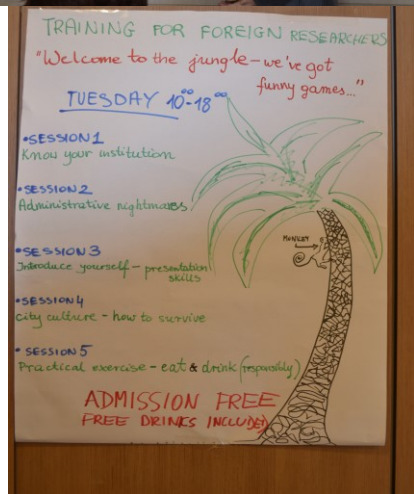 TRAINING FOR FOREIGN RESEARCHERS
"Welcome to the jungle - we've got
funny games..."
TUESDAY 10⁰⁰-18⁰⁰
• SESSION 1
Know your institution
• SESSION 2
Administrative nightmares
• SESSION 3
Introduce yourself - presentation
skills
MONKEY
• SESSION 4
city culture - how to survive
• SESSION 5
Practical exercise - eat & drink (responsibly)
ADMISSION FREE
FREE DRINKS INCLUDED